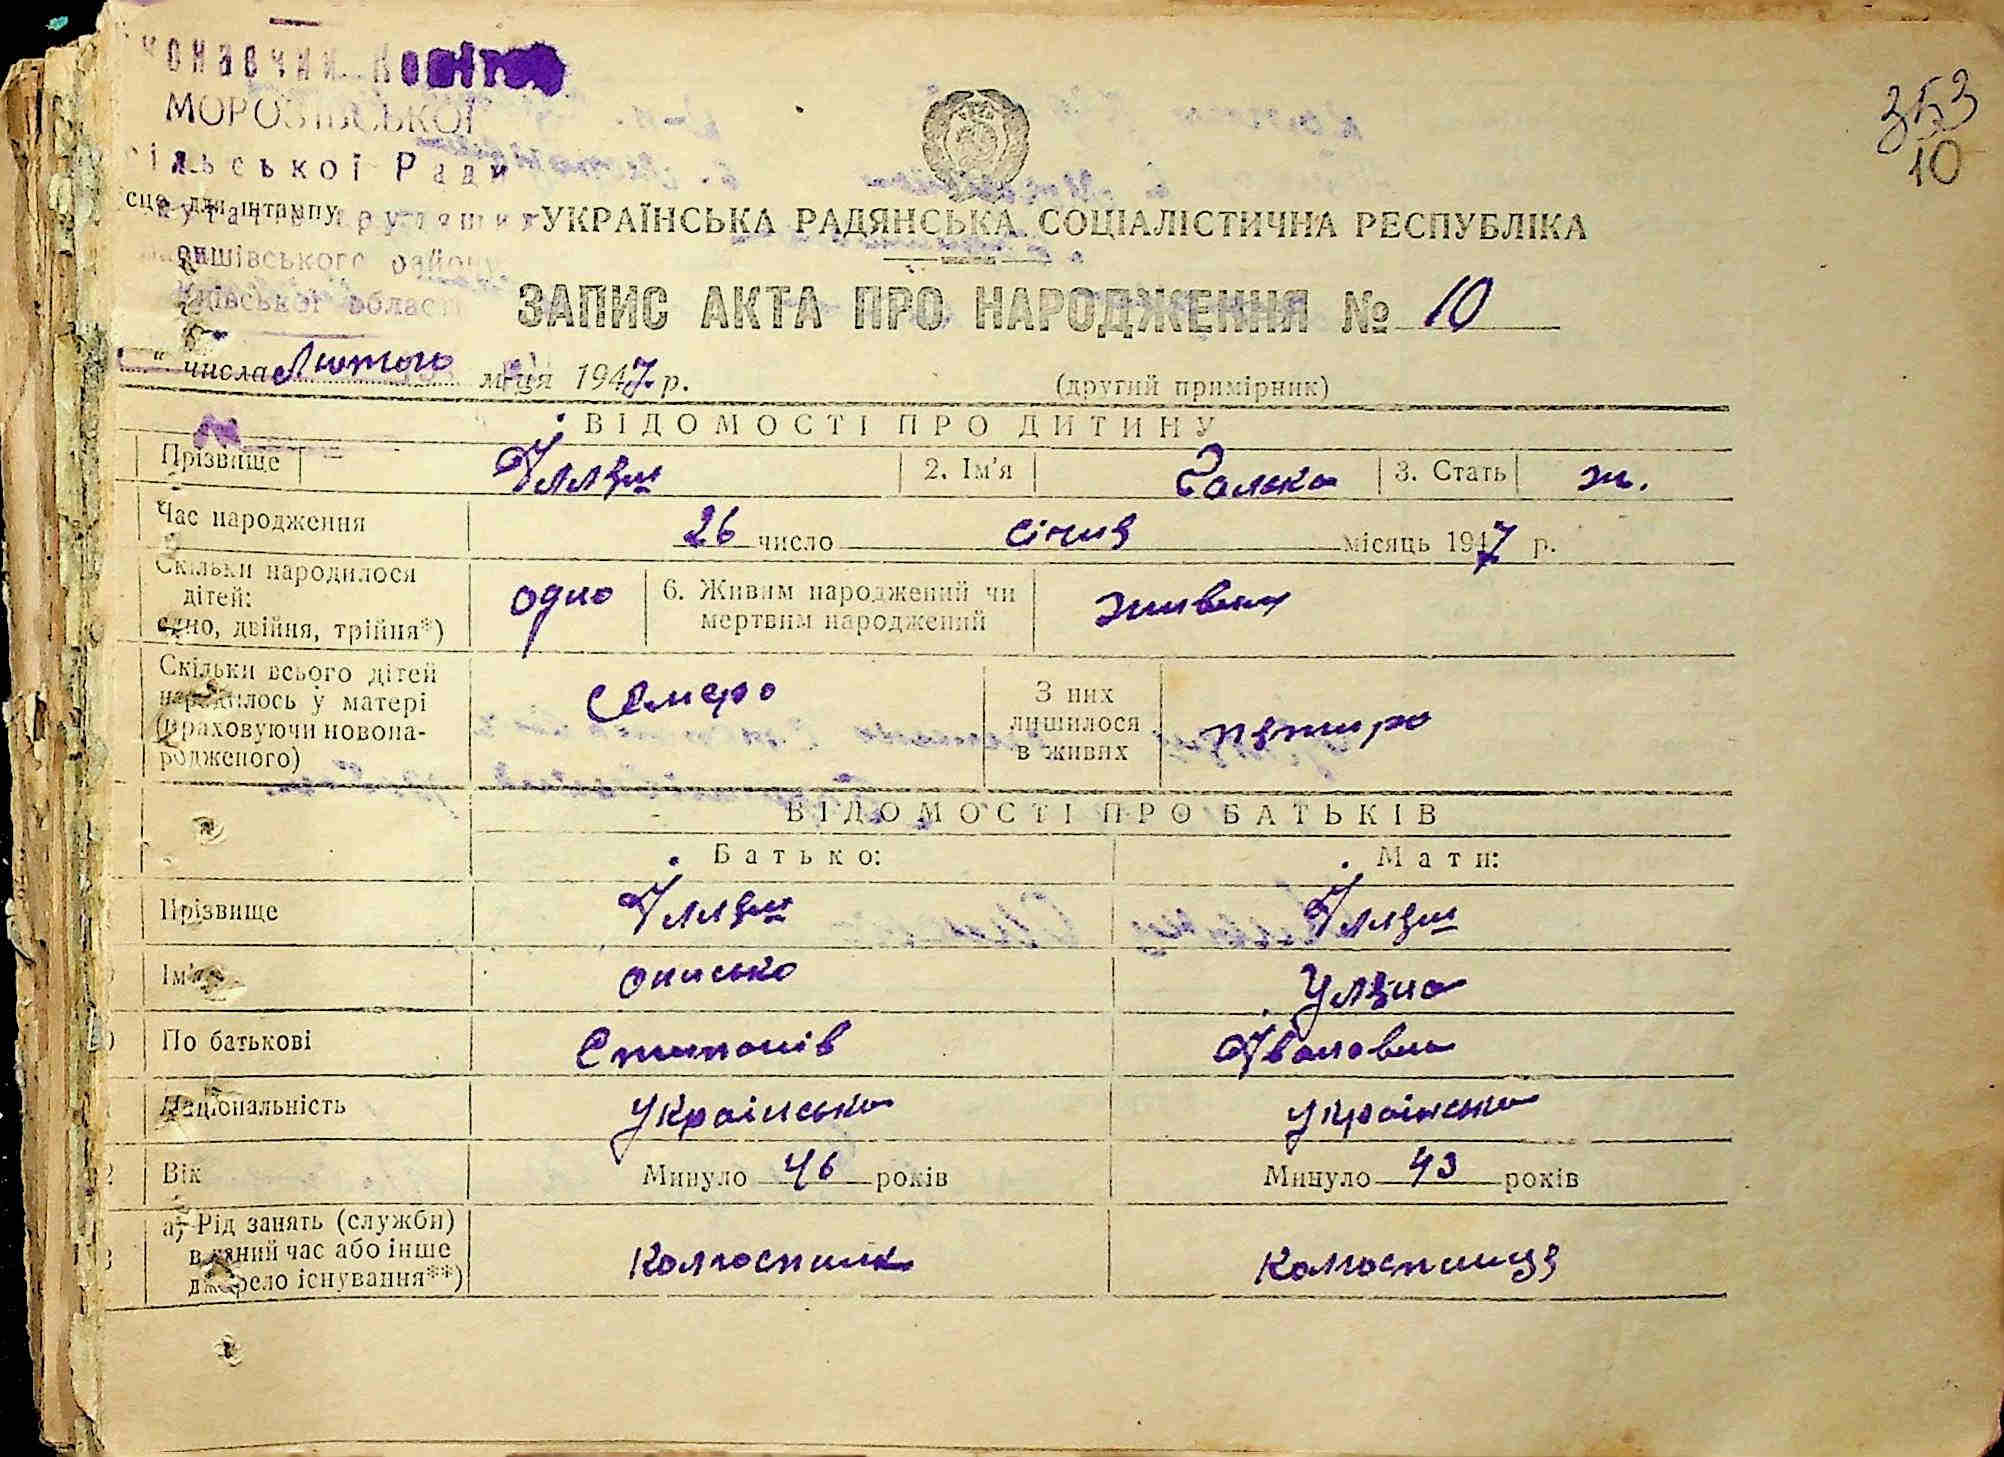 конавчий Комітет
МОРОЗІВСЬКОЇ
ільської Ради
сце для штампу
353
10
УКРАЇНСЬКА РАДЯНСЬКА СОЦІАЛІСТИЧНА РЕСПУБЛІКА
ишівського району
ївської області
ЗАПИС АКТА ПРО НАРОДЖЕННЯ № 10
" числа Лютого м-ця 1947 р.
(другий примірник)
ВІДОМОСТІ ПРО ДИТИНУ
Прізвище Ілляш 2. Ім'я Галька 3. Стать ж.
Час народження 26 число січня місяць 1947 р.
Скільки народилося дітей: одно, двійня, трійня*) одно 6. Живим народжений чи мертвим народжений живим
Скільки всього дітей народилось у матері (враховуючи новонародженого) семеро З них лишилося в живих пятиро
ВІДОМОСТІ ПРО БАТЬКІВ
Батько: Мати:
Прізвище Ілляш Ілляш
Ім'я Онисько Уляна
По батькові Степанів Івановна
Національність Українська Українська
Вік Минуло 46 років Минуло 43 років
а) Рід занять (служби) в даний час або інше джерело існування**) Колгоспник Колгоспниця